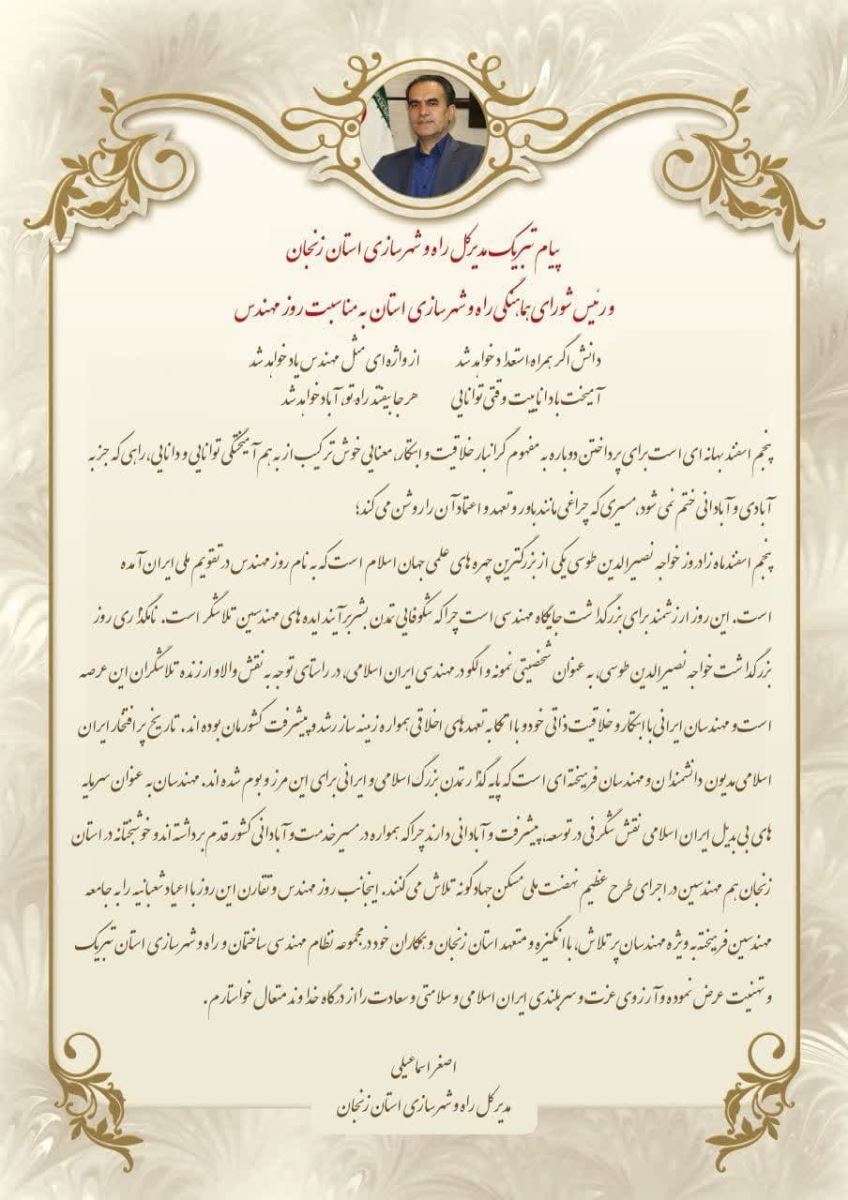 پیام تبریک مدیرکل راه و شهرسازی استان زنجان
و رئیس شورای هماهنگی راه و شهرسازی استان به مناسبت روز مهندس
دانش اگر همراه استعداد خواهد شد از واژه ای مثل مهندس یاد خواهد شد
آمیخت با دانایت وقتی توانایی هر جا بیفتد راه تو، آباد خواهد شد
پنجم اسفند بهانه ای است برای پرداختن دوباره به مفهوم گرانبار خلاقیت و ابتکار، معنایی خوش ترکیب از به هم آمیختگی توانایی و دانایی، راهی که جز به
آبادی و آبادانی ختم نمی شود، مسیری که چراغی مانند باور و تعهد و اعتماد آن را روشن می کند؛
پنجم اسفندماه زادروز خواجه نصیرالدین طوسی یکی از بزرگترین چهره های علمی جهان اسلام است که به نام روز مهندس در تقویم ملی ایران آمده
است. این روز ارزشمند برای بزرگداشت جایگاه مهندسی است چراکه شکوفایی تمدن بشر برآیند ایده های مهندسین تلاشگر است. نامگذاری روز
بزرگداشت خواجه نصیرالدین طوسی، به عنوان شخصیتی نمونه و الگو در مهندسی ایران اسلامی، در راستای توجه به نقش والا و ارزنده تلاشگران این عرصه
است و مهندسان ایرانی با ابتکار و خلاقیت ذاتی خود و با اتکا به تعهدهای اخلاقی همواره زمینه ساز رشد و پیشرفت کشورمان بوده اند. تاریخ پر افتخار ایران
اسلامی مدیون دانشمندان و مهندسان فرهیخته ای است که پایه گذار تمدن بزرگ اسلامی و ایرانی برای این مرز و بوم شده اند. مهندسان به عنوان سرمایه
های بی بدیل ایران اسلامی نقش شگرفی در توسعه، پیشرفت و آبادانی دارند چراکه همواره در مسیر خدمت و آبادانی کشور قدم برداشته اند و خوشبختانه در استان
زنجان هم مهندسین در اجرای طرح عظیم نهضت ملی مسکن جهادگونه تلاش می کنند. اینجانب روز مهندس و تقارن این روز با اعیاد شعبانیه را به جامعه
مهندسین فرهیخته به ویژه مهندسان پر تلاش، با انگیزه و متعهد استان زنجان و همکاران خود در مجموعه نظام مهندسی ساختمان و راه و شهرسازی استان تبریک
و تهنیت عرض نموده و آرزوی عزت و سربلندی ایران اسلامی و سلامتی و سعادت را از درگاه خداوند متعال خواستارم.
اصغر اسماعیلی
مدیرکل راه و شهرسازی استان زنجان